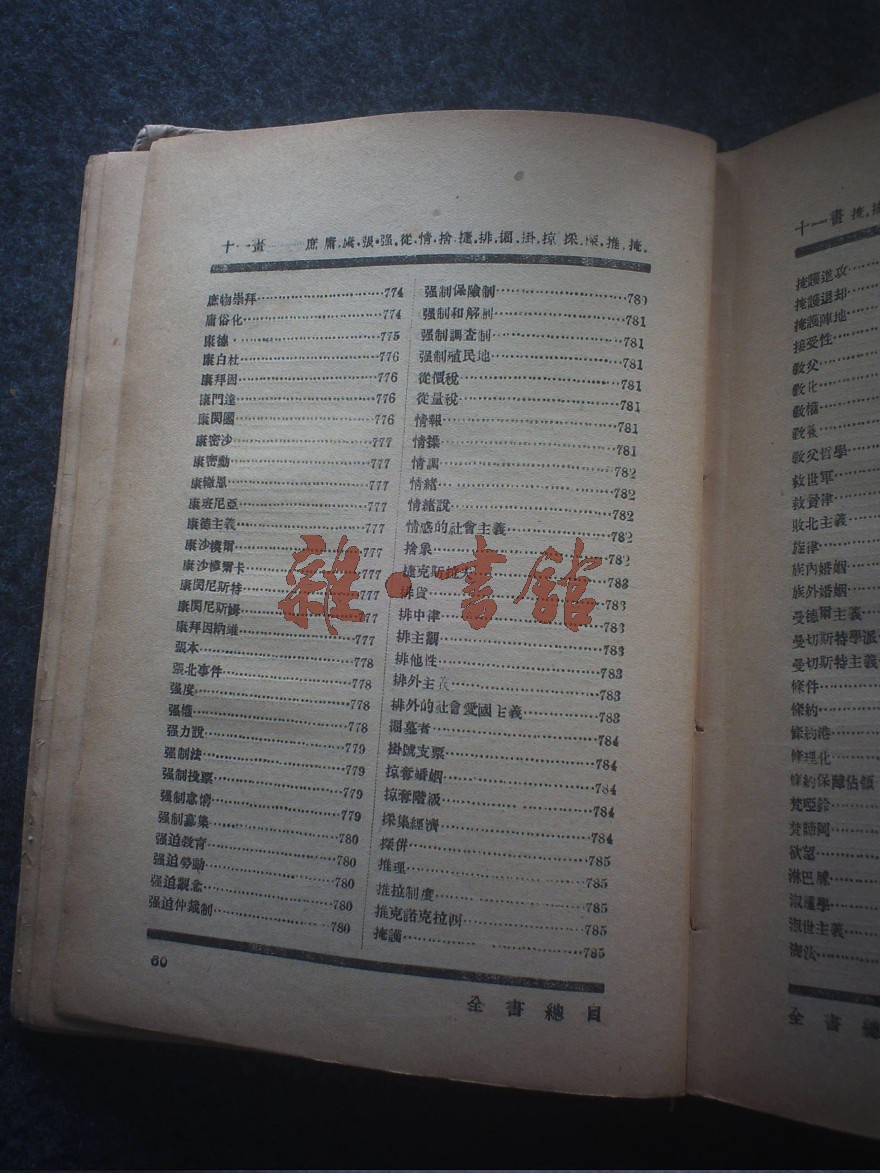 十一畫 庶.庸.康.張.强.從.情.捨.捷.排.掘.掛.掠.採.探.推.掩.
庶物崇拜 774
庸俗化 774
康德 775
康白杜 776
康拜因 776
康門達 776
康閔國 776
康密沙 777
康密勳 777
康徹恩 777
康班尼亞 777
康德主義 777
康沙模爾 777
康沙模爾卡 777
康閔尼斯特 777
康閔尼斯姆 777
康拜因納維 777
張本 778
張北事件 778
强度 778
强權 778
强力說 779
强制法 779
强制投票 779
强制念情
强制募集 780
强迫教育 780
强迫勞動 780
强迫觀念 780
强迫仲裁制 780
强制保險制 780
强制和解制 781
强制調查制 781
强制殖民地 781
從價稅 781
從量稅 781
情報 781
情操 781
情調 782
情緒 782
情緒說 782
情感的社會主義 782
捨象 782
捷克斯拉夫 783
排貨 783
排中律 783
排主調 783
排他性 783
排外主義 783
排外的社會愛國主義 783
掘墓者 784
掛號支票 784
掠奪婚姻 784
掠奪階級 784
採集經濟 784
探併 785
推理 785
推拉制度 785
推克諾克拉西 785
掩護 785
60
全書總目
雜·書館
十一畫 掩.
掩護進攻
掩護退却
掩護陣地
接受性
教父
教化
教權
教養
教父哲學
救世軍
救貧律
敗北主義
旋律
族內婚姻
族外婚姻
曼德爾主義
曼切斯特學派
曼切斯特主義
條件
條約
條約港
條理化
條約保障佔領
梵啞鈴
梵諦岡
欲望
淋巴腺
淑種學
淑世主義
淘汰
全書總